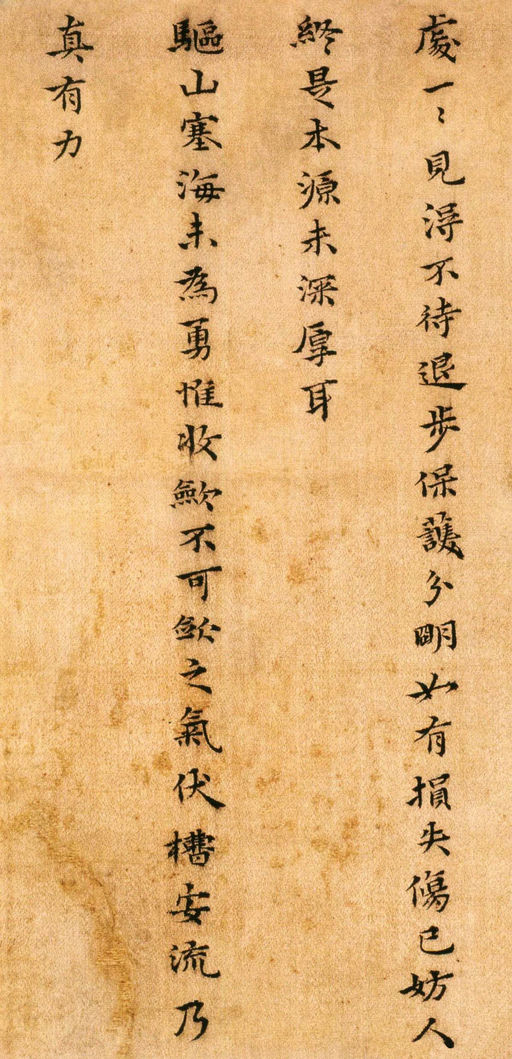 處一〻見得不待退步保護分明如有損失傷己妨人
終是本源未深厚耳
驅山塞海未為勇惟收斂不可斂之氣伏槽安流乃
真有力